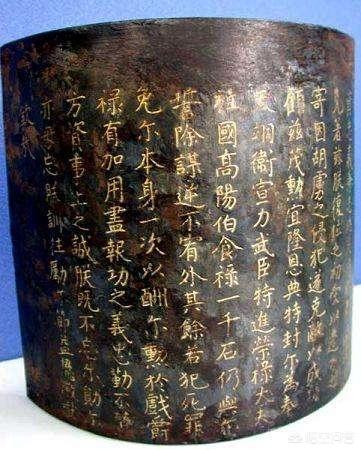 者茲朕復位之初
寄因胡虜之侵犯遂克敵以成功
顧茲茂勳宜隆恩典特封尔為奉
天翊衛宣力武臣特進榮祿大夫
柱國高陽伯食祿一千石仍與尔
誓除謀逆不宥外其餘若犯死罪
免尔本身一次以酬尔勳於戲爵
祿有加用盡報功之義忠勤不替
方資事上之誠朕既不忘尔勳尔
亦毋忘朕訓往勵節益
欽哉